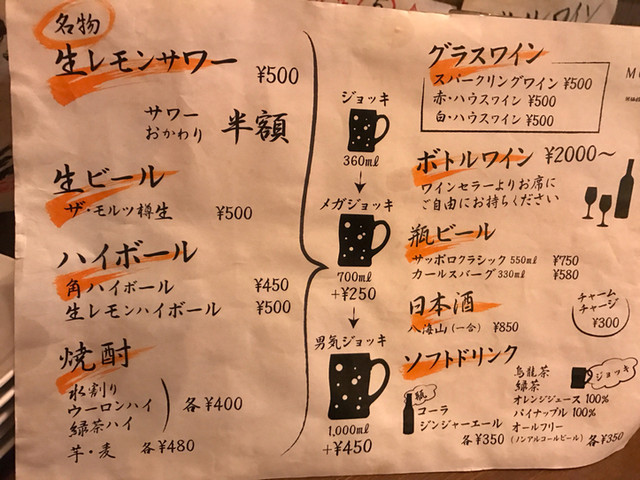 名物
生レモンサワー
¥500
サワー
おかわり 半額
生ビール
ザ・モルツ樽生 ¥500
ハイボール
角ハイボール ¥450
生レモンハイボール ¥500
焼酎
水割り
ウーロンハイ
緑茶ハイ
各¥400
芋・麦 各¥480
ジョッキ
360ml
メガジョッキ
700ml
+¥250
男気ジョッキ
1,000ml
+¥450
グラスワイン
スパークリングワイン ¥500
赤・ハウスワイン ¥500
白・ハウスワイン ¥500
ボトルワイン ¥2000〜
ワインセラーよりお席に
ご自由にお持ちください
瓶ビール
サッポロクラシック 550ml ¥750
カールスバーグ 330ml ¥580
日本酒
八海山(一合) ¥850
チャーム
チャージ
¥300
ソフトドリンク
瓶
コーラ
ジンジャーエール
各¥350
ジョッキ
烏龍茶
緑茶
オレンジジュース 100%
パイナップル 100%
オールフリー
(ノンアルコールビール) 各¥350